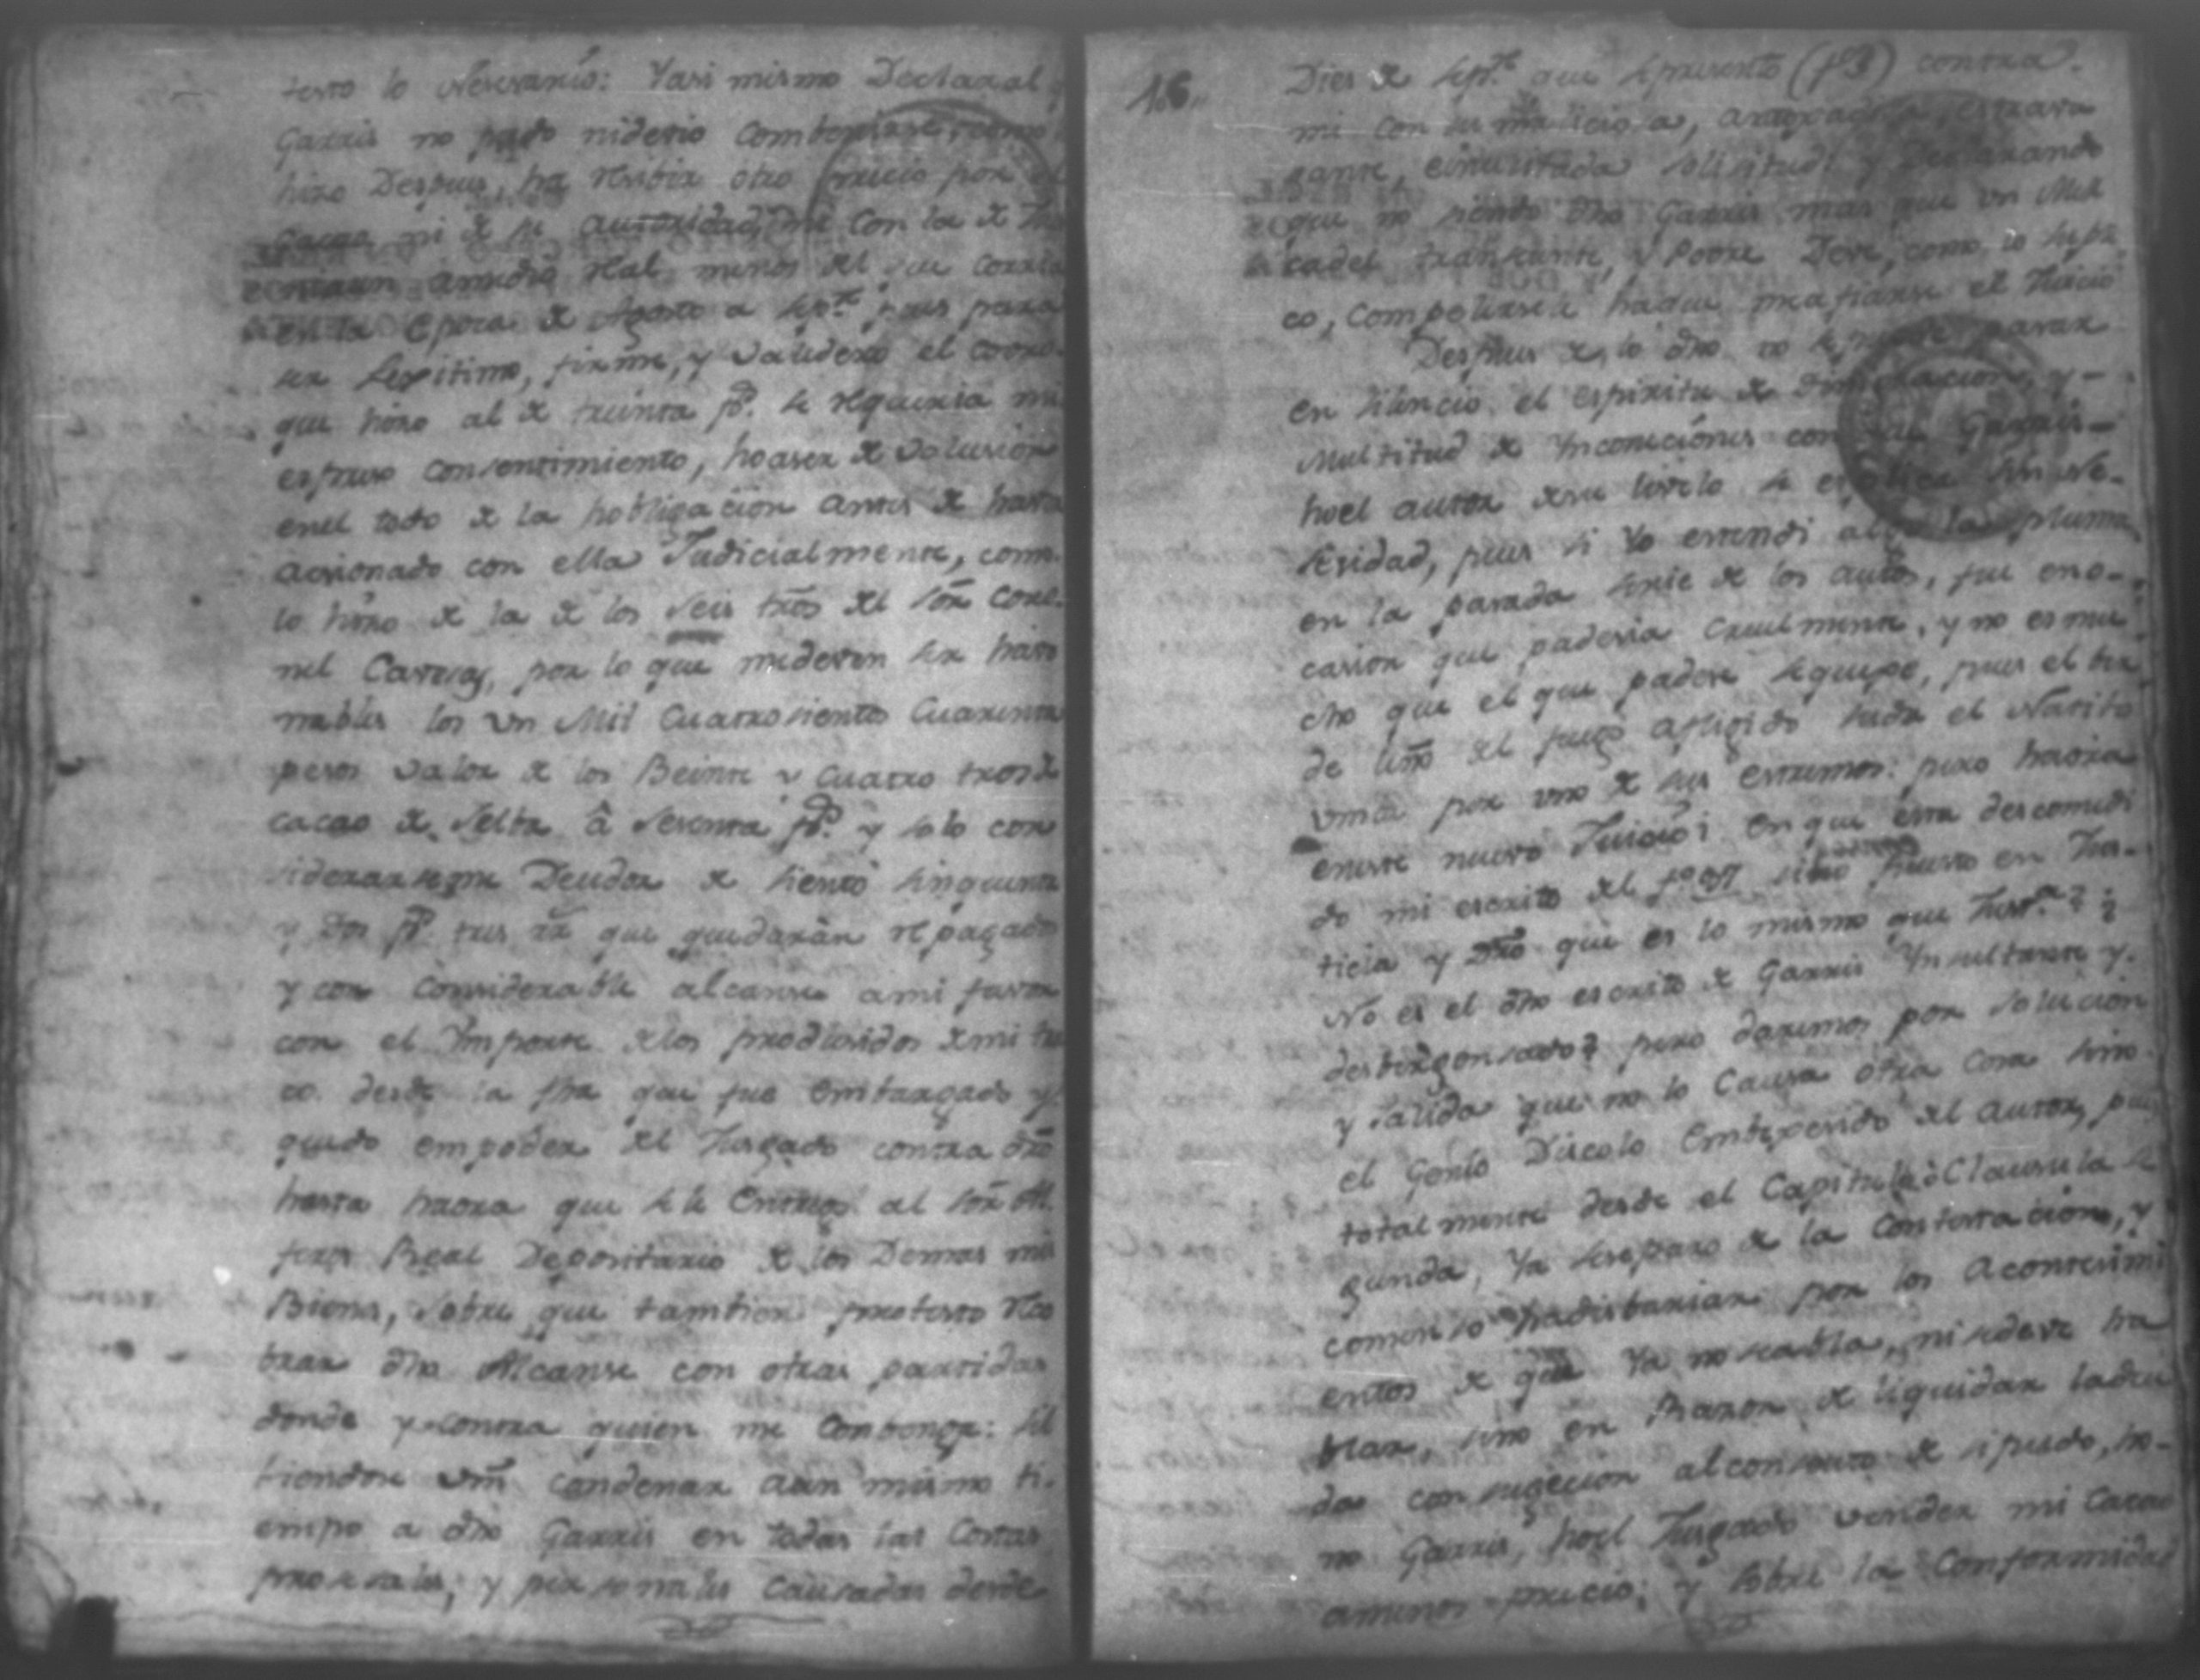 testo lo Nesesario: Yasi mismo Declaxa al
Garris no pudo ni devio combenirse como
hizo Despues, ha Resivir otro precio por el
Cacao ni de su autoridad, ni con la de
en la Epoca de Agosto a Sepre. pues para
ser Legitimo, firme, y validero el cobro
que hizo al de treinta ps. se requeria mi
espreso consentimiento, ho aser de volusion
en el todo de la hobligacion antes de haver
acsionado con ella Judicialmente, como
lo hizo de la de los seis tros. del Sor. Coro-
nel Caveras, por lo que me deven ser havo
nables los Un Mil Cuatrosientos Cuarenta
pesos valor de los Beinte y Cuatro tros. de
cacao de Selba â Sesenta ps. y solo con
siderarseme Deudor de siento sinquenta
y Dos ps. tres rs. que quedarán repagados
y con considerable alcanse a mi favor
con el Ymporte de los produsidos de mi
co. desde la fha que fue Embargado y
quedo em poder del Jusgado contra dro.
hasta haora que se le Entregó al Sor. Al
feres Real Depositario de los Demas mis
Bienes, sobre que tambien protesto Reco
brar dho Alcanse con otras partidas
donde y contra quien me Conbenga: Si
biendose Vm. condenar aun mismo ti-
empo a dho Garris en todas las Costas
prosesales, y personales causadas desde
16.
Dies de Sepre. que se presentó (f 3) contra
mi con su maliciosa,
sante, solisitud: y Declarando
que no siendo dho Garris mas que un Mer
cader transeunte, y Pobre Deve, como lo supli
co, compelerse a haque me afianse el Juicio
Despues de lo dho. no se puede pasar
en silencio el espiritu de y
Multitud de Ynconecsiónes con que Garris
ho el autor de su livelo se esplica sin Ne-
sesidad, pues si Yo estendi algo la pluma
en la pasada serie de los autos, fue en o-
casion que padesia cruelmente, y no es mu
cho que el que padese se quexe, pues el
de del afligido
por uno de sus estremos: pero haora
en este nuevo Juicio ¿ En que esta descomedi
do mi escrito del fo. 97 sino puesto en Jus-
ticia y Dro. que es lo mismo que Justa.? ¿
No es el dho escrito de Garris Ynsultante y
desbergonsado? pero daremos por solucion
y salida que no lo Causa otra cosa sino
el Genio Discolo Embexesido del autor, pues
totalmente desde el Capitulo ô Clausula se
gunda, Ya se separo de la Contestacion, y
comenso ha disbariar por los Acontesimi
entos de que Ya no se abla, ni se deve ha
blar, sino en Razon de liquidar la deu
da con sugecion al consento de si pudo, ho
no Garris, ho el Jusgado vender mi Cacao
a menos precio; y sobre la Conformidad